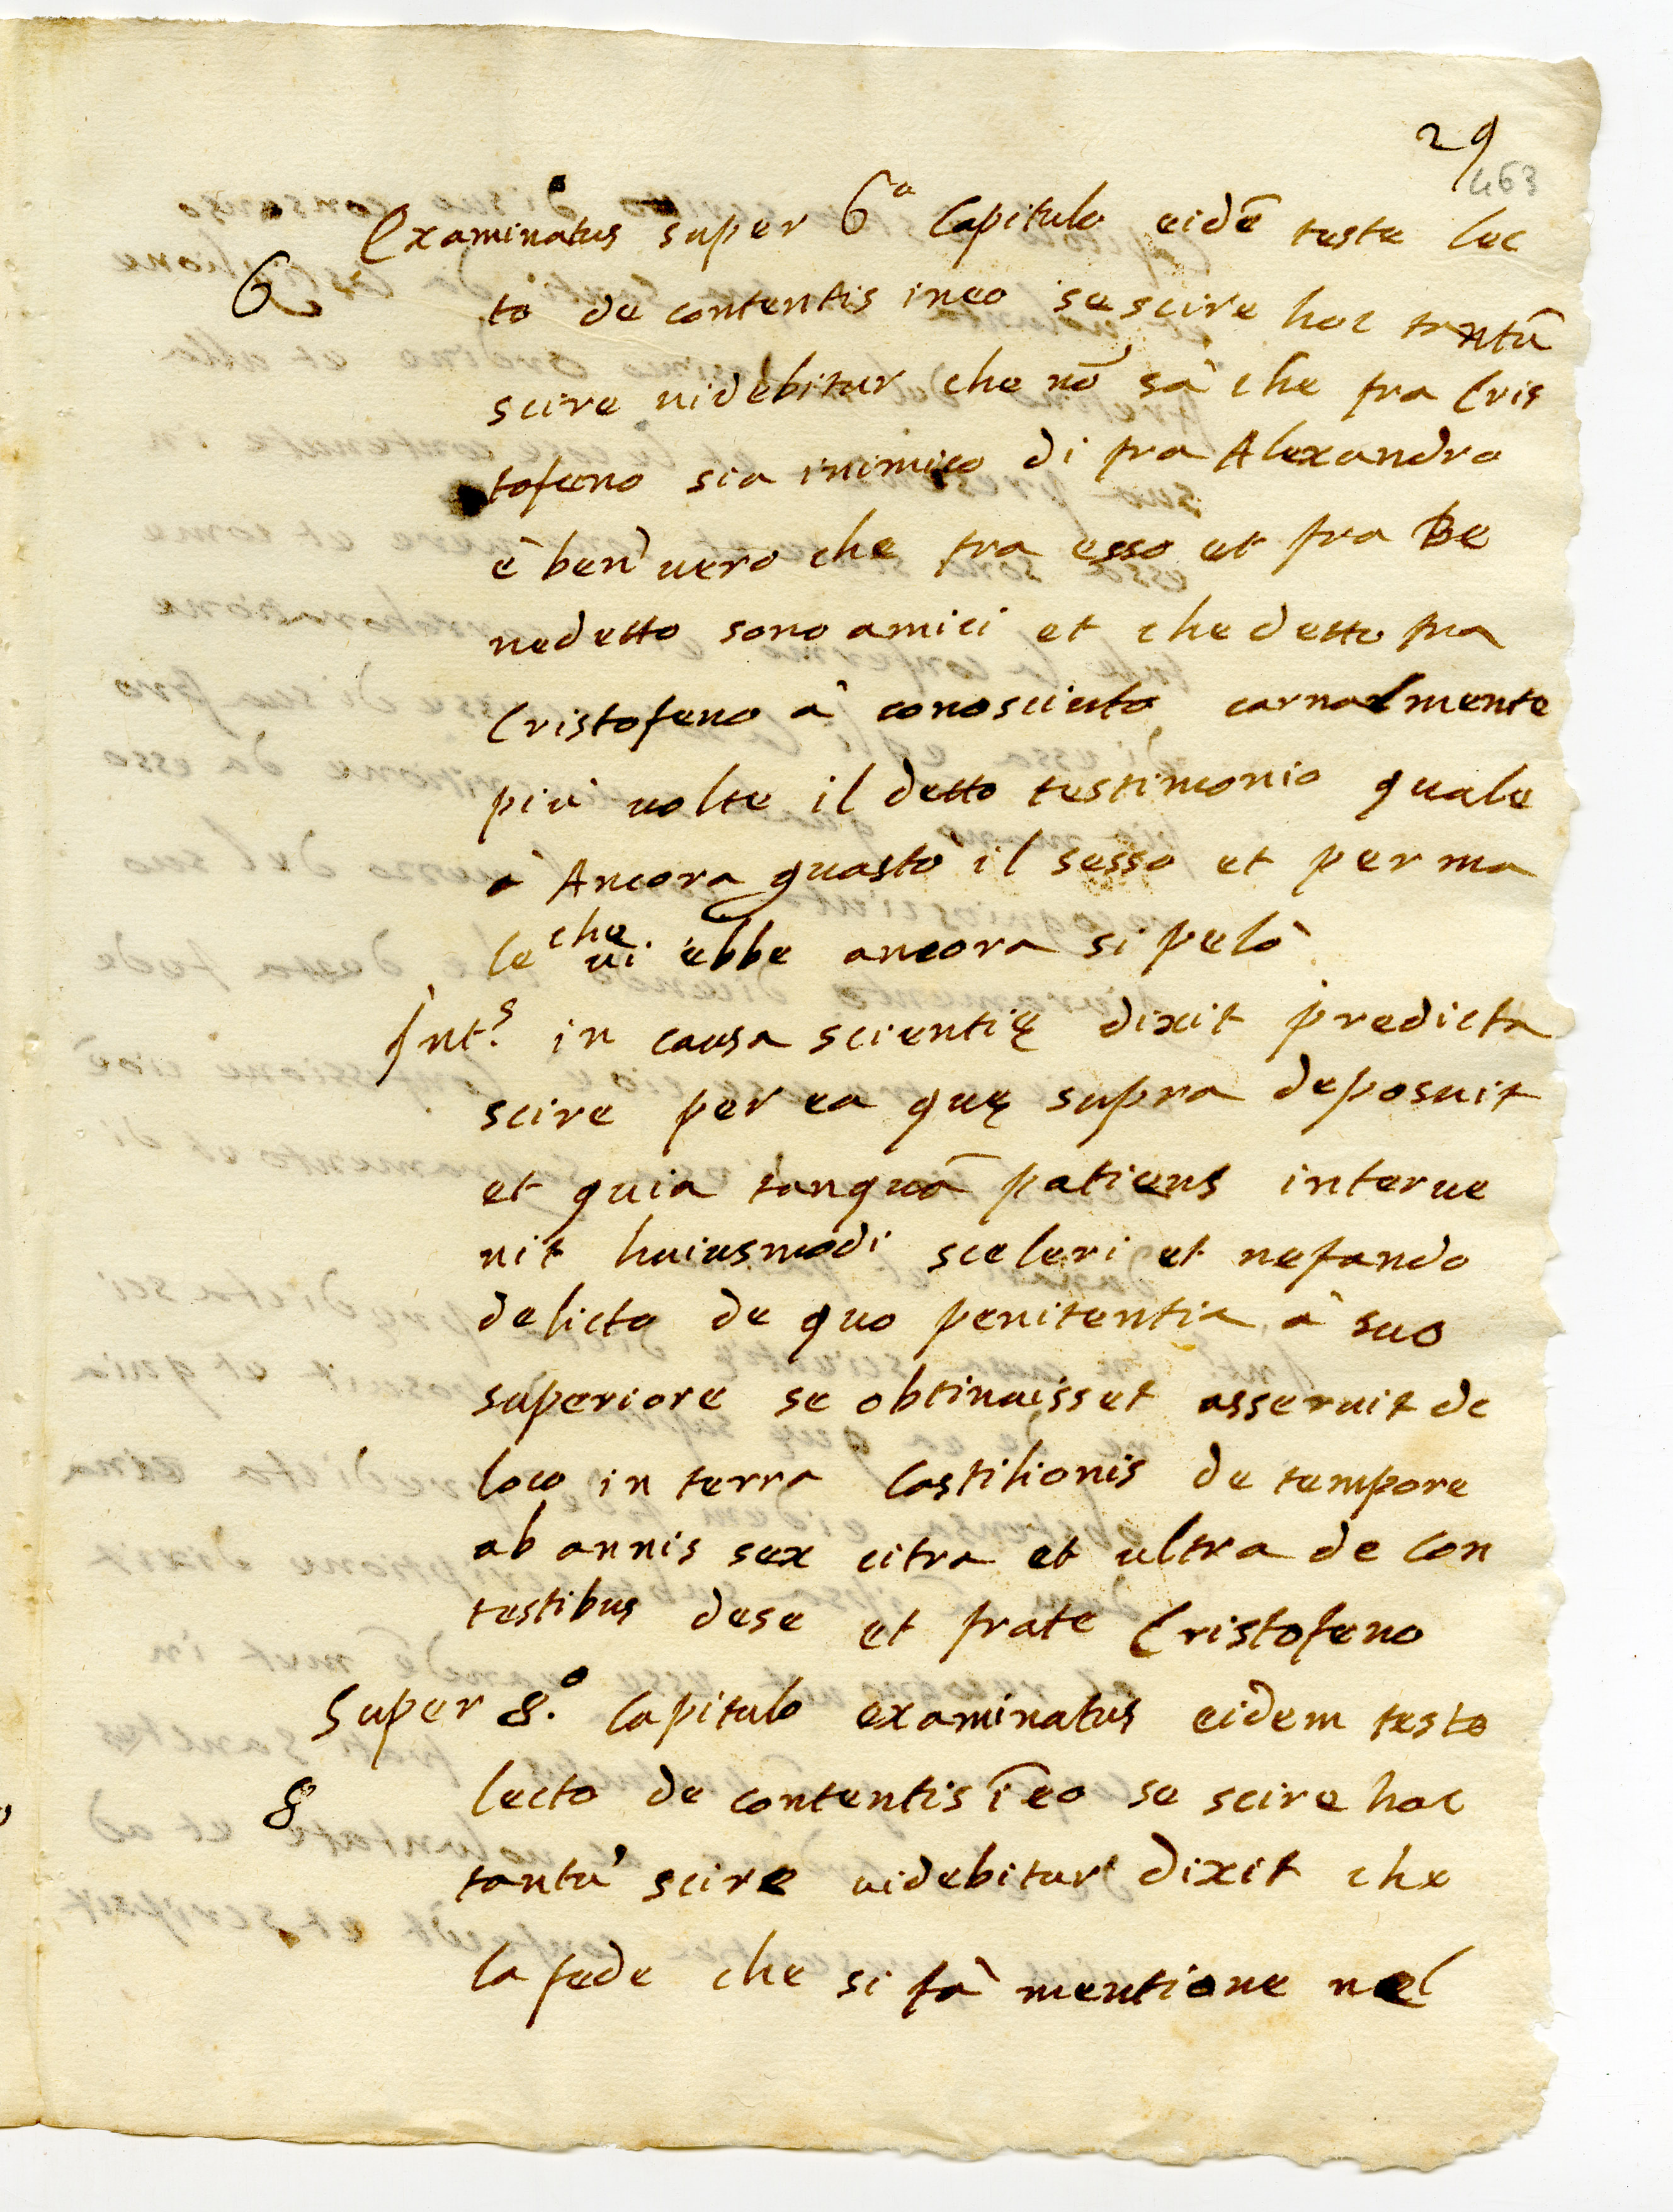 29
463
Examinatus super 6º Capitulo eidē teste lec
6
to de contentis ineo se scire hoc tantū
scire uidebitur che nō sà che fra Cris
tofeno sia inimico di fra Alexandro
è ben uero che fra esso et fra Be
nedetto sono amici et che detto fra
Cristofeno à conosciuto carnalmente
più uolte il detto testimonio quale
à Ancora guasto il sesso et per ma
le che ui ebbe ancora si pelò
Int.s in causa scientię dixit predicta
scire per ea quę supra deposuit
et quia tanquā patiens interue
nit huiusmodi sceleri et nefando
delicto de quo penitentia à suo
superiore se obtinuisset asseruit de
loco in terra Castilionis de tempore
ab annis sex citra et ultra de con
testibus dese et frate Cristofeno
Super 8.º Capitulo examinatus eidem teste
8
lecto de contentis ī eo se scire hoc
tantū scire uidebitur dixit che
la fede che si fà mentione nel